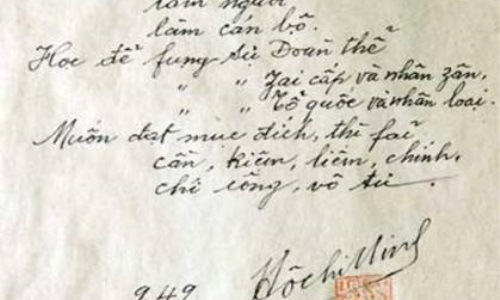 làm người
làm cán bộ.
Học để fụng sự Đoàn thể
" " Zai cấp và nhân zân,
" " Tổ quốc và nhân loại.
Muốn đạt mục đích, thì fải
cần, kiệm, liêm, chính,
chí công, vô tư.
Hồ Chí Minh
9.49